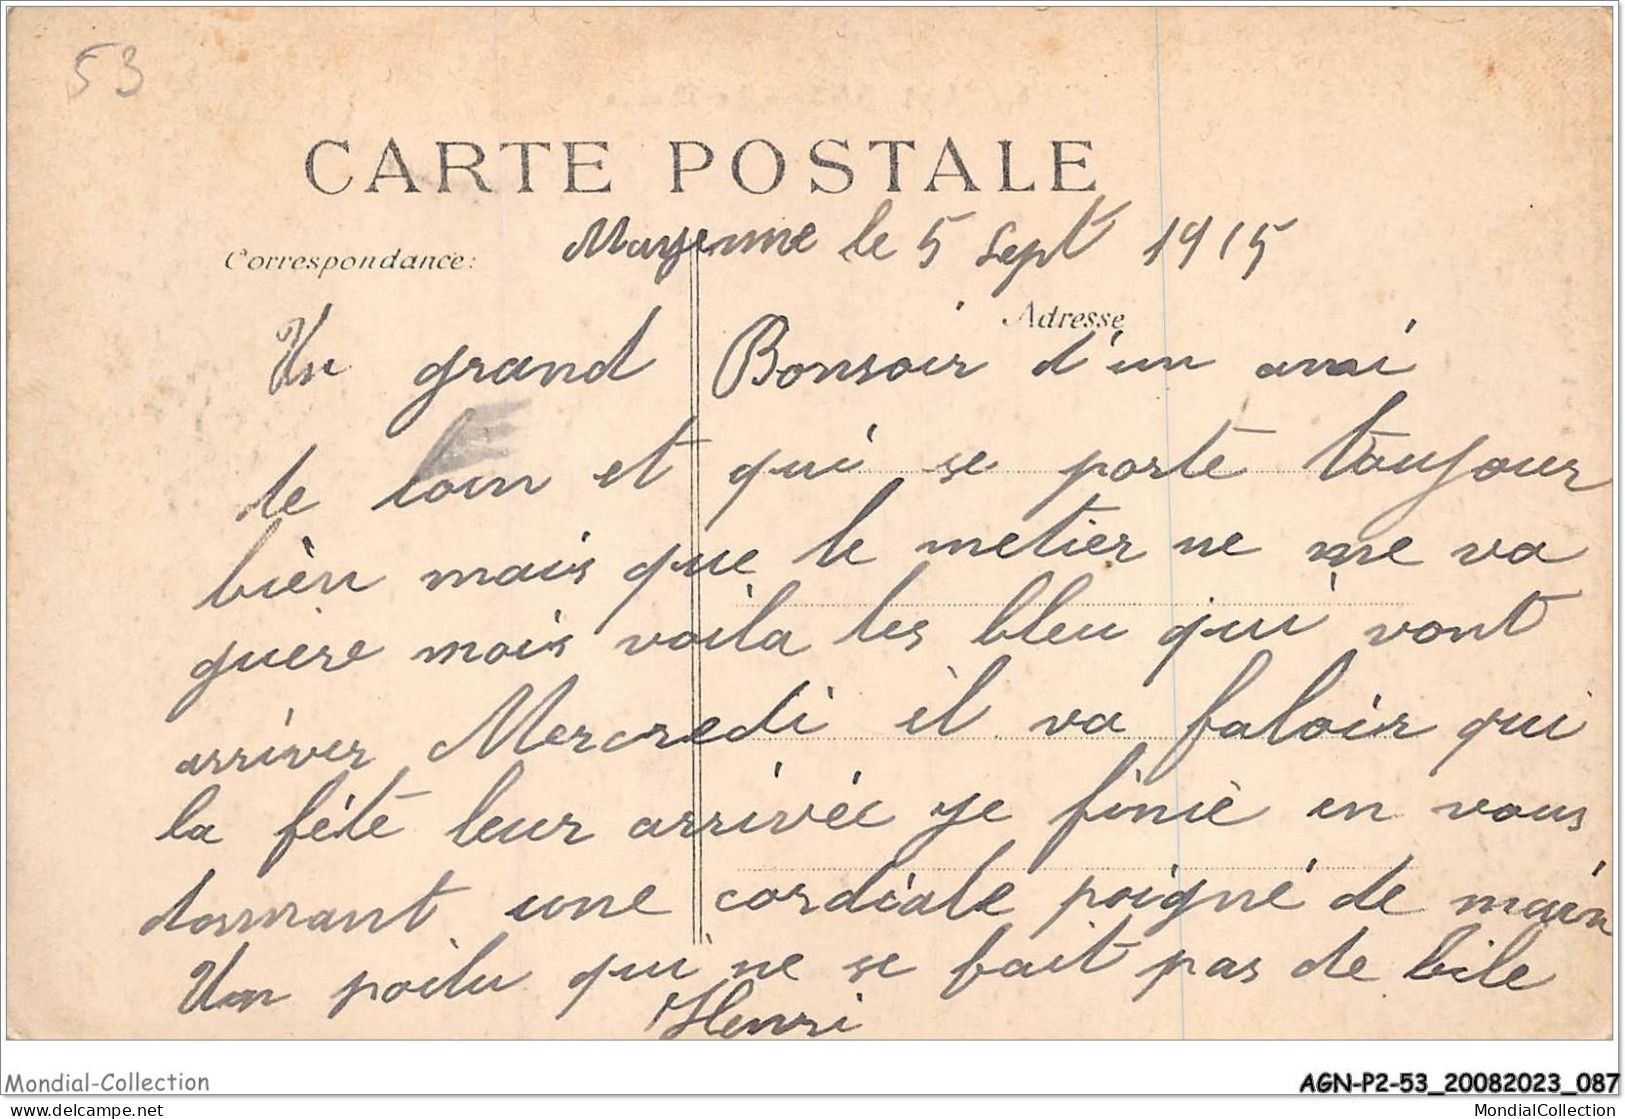 53
CARTE POSTALE
Mayenne le 5 Sept 1915
Correspondance:
Adresse
Un grand Bonsoir d'un ami
de loin et qui se porte toujour
bien mais que le metier ne me va
guere mois voila les bleu qui vont
arriver Mercredi il va faloir qui
la féte leur arrivée je finie en vous
donnant une cordiale poigné de main
Un poilu qui ne se fait pas de bile
Henri
Mondial-Collection
AGN-P2-53_20082023_087
delcampe.net
MondialCollection